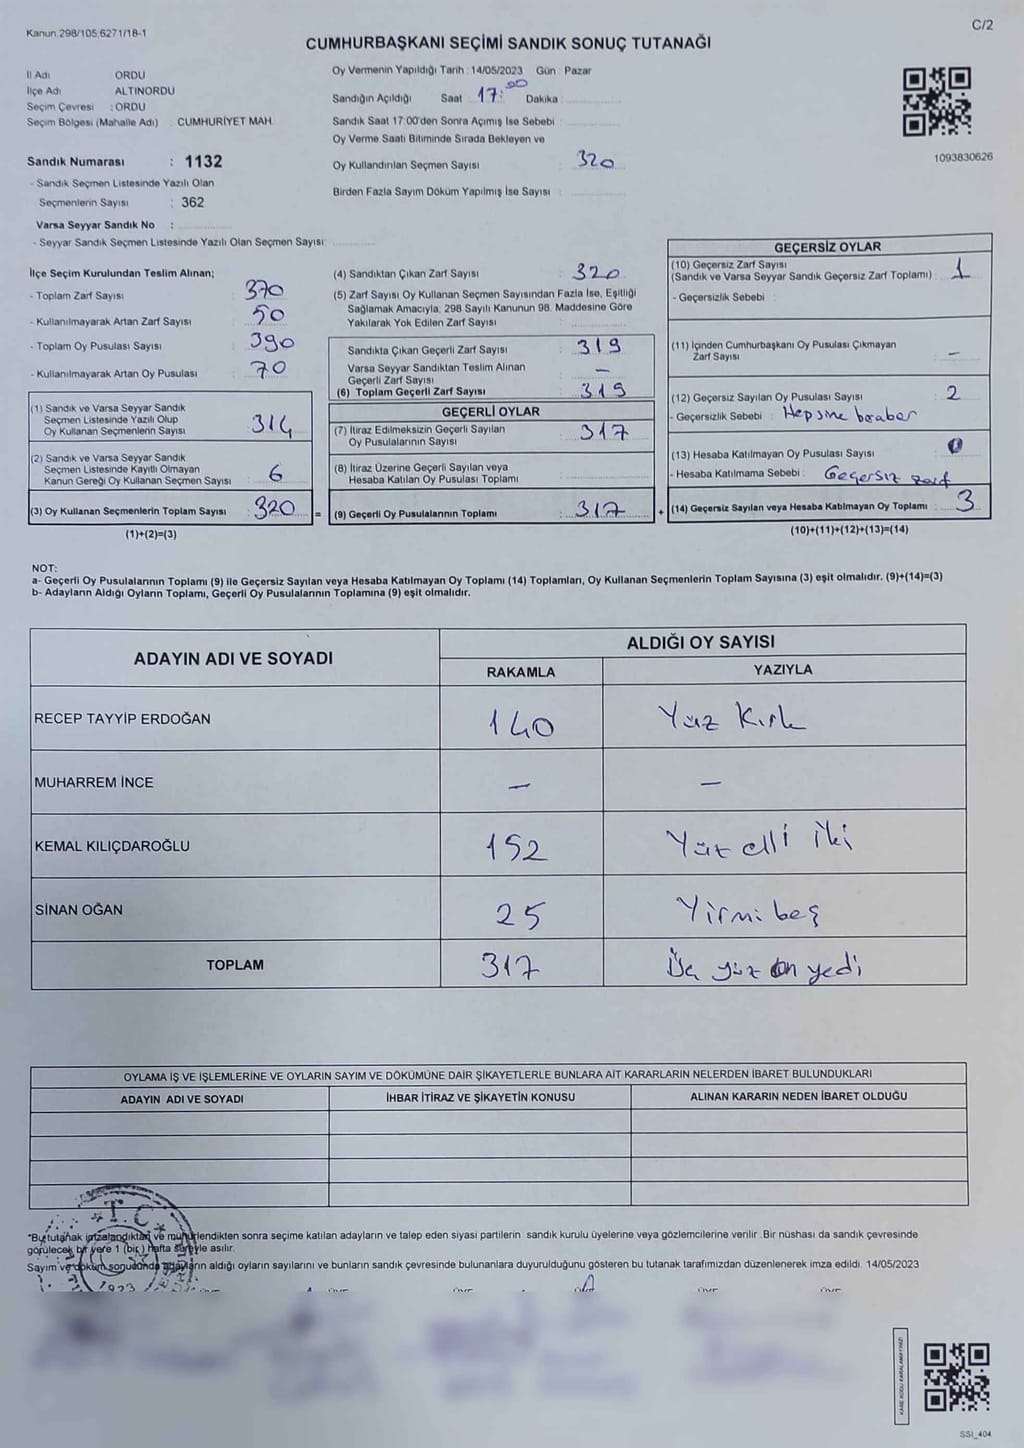 Kanun 298/105,6271/18-1
C/2
CUMHURBAŞKANI SEÇİMİ SANDIK SONUÇ TUTANAĞI
İl Adı ORDU
İlçe Adı ALTINORDU
Seçim Çevresi : ORDU
Seçim Bölgesi (Mahalle Adı) : CUMHURİYET MAH.
Sandık Numarası : 1132
- Sandık Seçmen Listesinde Yazılı Olan
Seçmenlerin Sayısı : 362
Varsa Seyyar Sandık No :
- Seyyar Sandık Seçmen Listesinde Yazılı Olan Seçmen Sayısı:
Oy Vermenin Yapıldığı Tarih : 14/05/2023 Gün : Pazar
Sandığın Açıldığı Saat 17:00 Dakika :
Sandık Saat 17:00'den Sonra Açılmış İse Sebebi :
Oy Verme Saati Bitiminde Sırada Bekleyen ve
Oy Kullandırılan Seçmen Sayısı : 320
Birden Fazla Sayım Döküm Yapılmış İse Sayısı :
1093830626
İlçe Seçim Kurulundan Teslim Alınan;
- Toplam Zarf Sayısı : 370
- Kullanılmayarak Artan Zarf Sayısı : 50
- Toplam Oy Pusulası Sayısı : 390
- Kullanılmayarak Artan Oy Pusulası : 70
(1) Sandık ve Varsa Seyyar Sandık
Seçmen Listesinde Yazılı Olup
Oy Kullanan Seçmenlerin Sayısı : 314
(2) Sandık ve Varsa Seyyar Sandık
Seçmen Listesinde Kayıtlı Olmayan
Kanun Gereği Oy Kullanan Seçmen Sayısı : 6
(3) Oy Kullanan Seçmenlerin Toplam Sayısı : 320 =
(1)+(2)=(3)
(4) Sandıktan Çıkan Zarf Sayısı : 320
(5) Zarf Sayısı Oy Kullanan Seçmen Sayısından Fazla İse, Eşitliği
Sağlamak Amacıyla, 298 Sayılı Kanunun 98. Maddesine Göre
Yakılarak Yok Edilen Zarf Sayısı :
Sandıkta Çıkan Geçerli Zarf Sayısı : 319
Varsa Seyyar Sandıktan Teslim Alınan
Geçerli Zarf Sayısı : –
(6) Toplam Geçerli Zarf Sayısı : 319
GEÇERLİ OYLAR
(7) İtiraz Edilmeksizin Geçerli Sayılan
Oy Pusulalarının Sayısı : 317
(8) İtiraz Üzerine Geçerli Sayılan veya
Hesaba Katılan Oy Pusulası Toplamı :
(9) Geçerli Oy Pusulalarının Toplamı : 317 +
GEÇERSİZ OYLAR
(10) Geçersiz Zarf Sayısı
(Sandık ve Varsa Seyyar Sandık Geçersiz Zarf Toplamı) : 1
- Geçersizlik Sebebi :
(11) İçinden Cumhurbaşkanı Oy Pusulası Çıkmayan
Zarf Sayısı : –
(12) Geçersiz Sayılan Oy Pusulası Sayısı : 2
- Geçersizlik Sebebi : Hepsine beraber
(13) Hesaba Katılmayan Oy Pusulası Sayısı : 0
- Hesaba Katılmama Sebebi : Geçersiz zarf
(14) Geçersiz Sayılan veya Hesaba Katılmayan Oy Toplamı : 3
(10)+(11)+(12)+(13)=(14)
NOT:
a- Geçerli Oy Pusulalarının Toplamı (9) ile Geçersiz Sayılan veya Hesaba Katılmayan Oy Toplamı (14) Toplamları, Oy Kullanan Seçmenlerin Toplam Sayısına (3) eşit olmalıdır. (9)+(14)=(3)
b- Adayların Aldığı Oyların Toplamı, Geçerli Oy Pusulalarının Toplamına (9) eşit olmalıdır.
ADAYIN ADI VE SOYADI
ALDIĞI OY SAYISI
RAKAMLA YAZIYLA
RECEP TAYYİP ERDOĞAN 140 Yüz Kırk
MUHARREM İNCE – –
KEMAL KILIÇDAROĞLU 152 Yüz elli iki
SİNAN OĞAN 25 Yirmi beş
TOPLAM 317 Üç yüz on yedi
OYLAMA İŞ VE İŞLEMLERİNE VE OYLARIN SAYIM VE DÖKÜMÜNE DAİR ŞİKAYETLERLE BUNLARA AİT KARARLARIN NELERDEN İBARET BULUNDUKLARI
ADAYIN ADI VE SOYADI İHBAR İTİRAZ VE ŞİKAYETİN KONUSU ALINAN KARARIN NEDEN İBARET OLDUĞU
T.C.
*Bu tutanak imzalandıktan ve mühürlendikten sonra seçime katılan adayların ve talep eden siyasi partilerin sandık kurulu üyelerine veya gözlemcilerine verilir. Bir nüshası da sandık çevresinde
görülecek bir yere 1 (bir) hafta süreyle asılır.
Sayım ve döküm sonucunda adayların aldığı oyların sayılarını ve bunların sandık çevresinde bulunanlara duyurulduğunu gösteren bu tutanak tarafımızdan düzenlenerek imza edildi. 14/05/2023
1923
KARE KODU KARALAMAYINIZ!
SSI_404